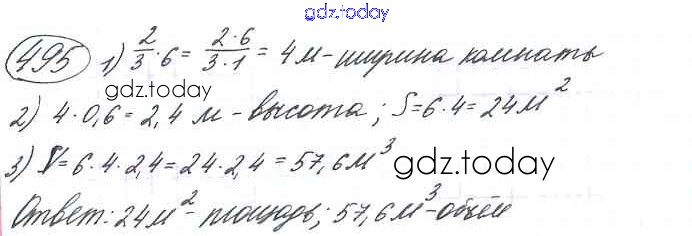 gdz.today
495 1) 2/3 · 6 = 2·6/3·1 = 4 м - ширина комнаты
gdz.today
2) 4 · 0,6 = 2,4 м - высота; S = 6 · 4 = 24 м²
3) V = 6 · 4 · 2,4 = 24 · 2,4 = 57,6 м³
gdz.today
Ответ: 24 м² - площадь; 57,6 м³ - объём